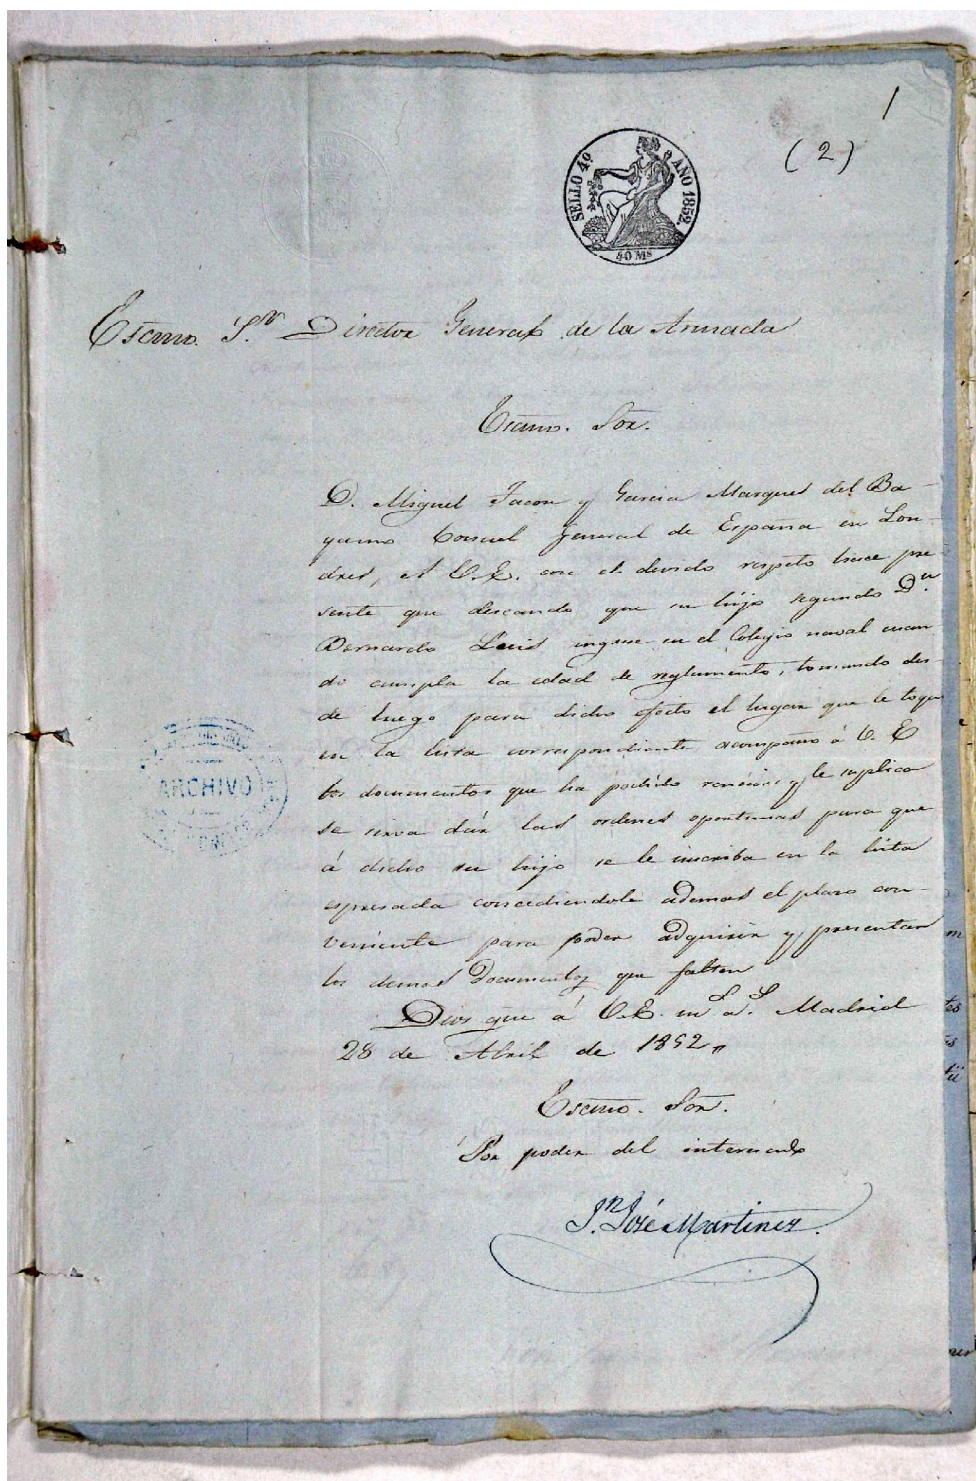 1
(2)
SELLO 4º AÑO 1852.
40 Ms
Escmo. S.or Director General de la Armada
Escmo. Sor.
D. Miguel Tacon y Garcia Marques del Ba-
yamo Consul General de España en Lon-
dres, á V.E. con el devido respeto hace pre
sente que deseando que su hijo segundo D.n
Bernardo Luis ingrese en el Colegio naval cuan
do cumpla la edad de reglamento, tomando des-
de luego para dicho efecto el lugar que le toque
en la lista correspondiente acompaño á V. E
los documentos que ha podido reunir y le suplica
se sirva dár las ordenes oportunas para que
á dicho su hijo se le inscriba en la lista
espresada concediendole ademas el plazo con-
veniente para poder adquirir y presentar
los demas Documentos que falten
Dios gue á V.E. m.s a.s Madrid
28 de Abril de 1852
Escmo. Sor.
Por poder del interesado
J.n José Martinez.
ARCHIVO